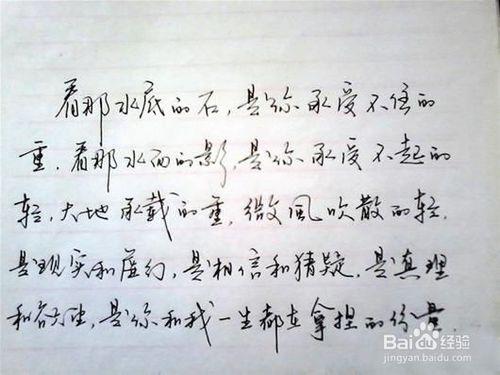 看那水底的石，是你承受不住的
重，看那水面的影，是你承受不起的
轻，大地承载的重，微風吹散的轻，
是现实和虚幻，是相信和猜疑，是真理
和谷生，是你和我一生都在拿捏的份量
Baidu经验
jingyan.baidu.com